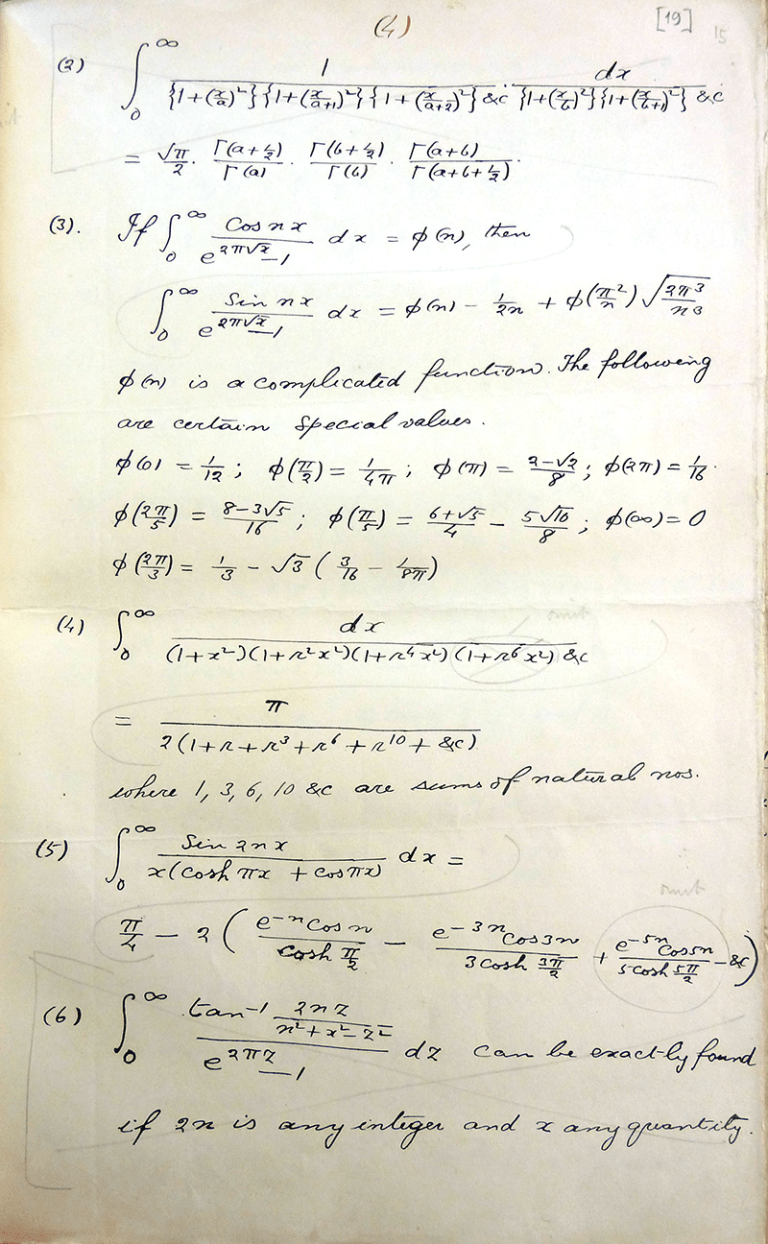 (4) [19] 15
(2) ∫₀^∞ 1/({1+(x/a)²}{1+(x/(a+1))²}{1+(x/(a+2))²} &c) · dx/({1+(x/b)²}{1+(x/(b+1))²} &c)
= √π/2 · Γ(a+½)/Γ(a) · Γ(b+½)/Γ(b) · Γ(a+b)/Γ(a+b+½).
(3). If ∫₀^∞ Cos nx/(e^(2π√x) − 1) dx = φ(n), then
∫₀^∞ Sin nx/(e^(2π√x) − 1) dx = φ(n) − 1/2n + φ(π²/n) √(2π³/n³)
φ(n) is a complicated function. The following
are certain special values.
φ(0) = 1/12 ; φ(π/2) = 1/4π ; φ(π) = (2−√2)/8 ; φ(2π) = 1/16.
φ(2π/5) = (8−3√5)/16 ; φ(π/5) = (6+√5)/4 − 5√10/8 ; φ(∞) = 0
φ(2π/3) = 1/3 − √3 (3/16 − 1/8π)
omit
(4) ∫₀^∞ dx/((1+x²)(1+r²x²)(1+r⁴x²)(1+r⁶x²) &c)
= π/(2(1+r+r³+r⁶+r¹⁰+&c))
where 1, 3, 6, 10 &c are sums of natural nos.
(5) ∫₀^∞ Sin 2nx/(x(cosh πx + cos πx)) dx =
omit
π/4 − 2 (e^(−n) Cos n/Cosh π/2 − e^(−3n) Cos 3n/3 Cosh 3π/2 + e^(−5n) Cos 5n/5 Cosh 5π/2 − &c)
(6) ∫₀^∞ tan⁻¹ (2nz/(n²+x²−z²))/(e^(2πz) − 1) dz can be exactly found
if 2n is any integer and x any quantity.